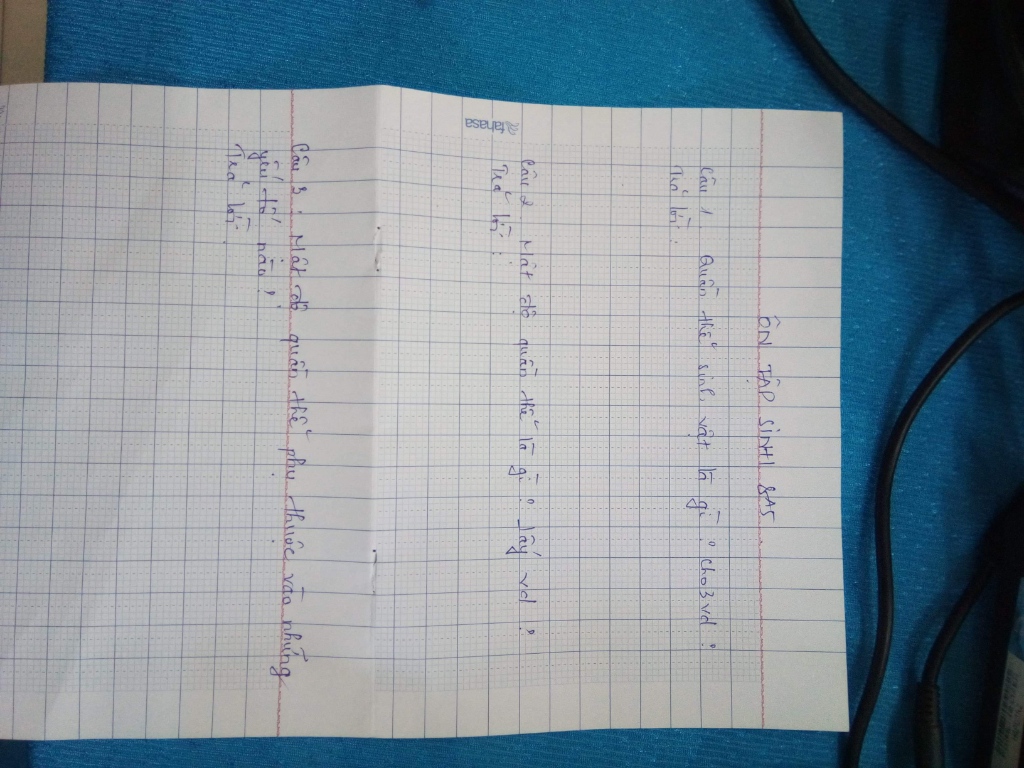 ÔN TẬP SINH 8A5
Câu 1. Quần thể sinh vật là gì? Cho 3 vd?
Trả lời:
tahasa
Câu 2. Mật độ quần thể là gì? Lấy vd?
Trả lời:
Câu 3. Mật độ quần thể phụ thuộc vào những
yếu tố nào?
Trả lời: